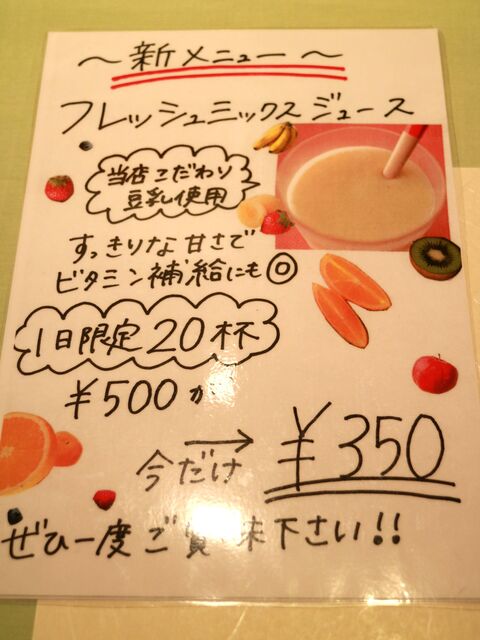 ～新メニュー～
フレッシュミックスジュース
当店こだわり
豆乳使用
すっきりな甘さで
ビタミン補給にも◎
1日限定20杯
¥500が
今だけ → ¥350
ぜひ一度ご賞味下さい!!